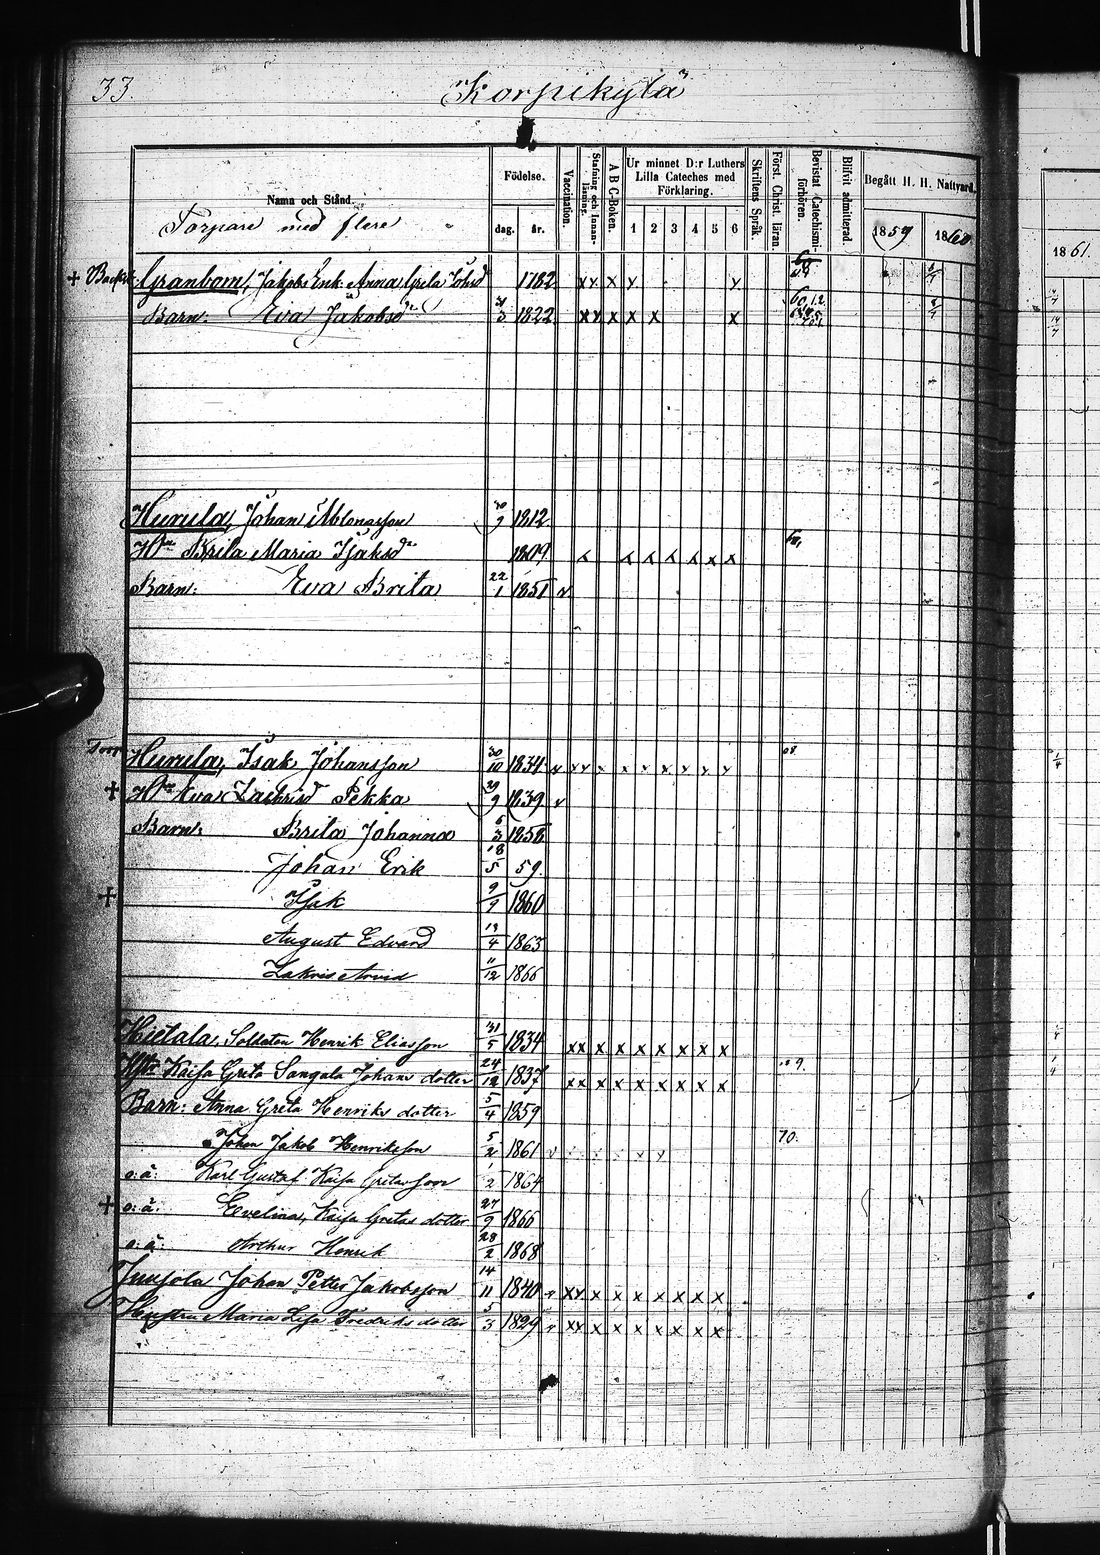 33.
Korpikylä
Namn och Stånd.
Torpare med flere
Födelse.
dag. år.
Vaccination.
Stafning och Innanläsning.
A B C-Boken.
Ur minnet D:r Luthers Lilla Cateches med Förklaring.
1 2 3 4 5 6
Skriftens Språk.
Först. Christ. läran.
Bevistat Catechismiförhören.
Blifvit admitterad.
Begått H. H. Nattvard.
1859 1860
1861
+ Granbom, Jakobs Enk. Anna Greta 1782 x x x
Barn: Eva Jakobsdr 3 1822 x x x x x x
Hurula, Johan 9 1812
Hu Brita Maria Isaksdr 1809
Barn: Eva Brita 22/1 1851
Torp. Hurula, Isak Johansson 30/10 1834
+ Hu Eva Pekka 29/9 1839
Barn: Brita Johanna 6/3 1858
Johan Erik 18/5 59.
+ Isak 9/9 1860
August Edvard 13/4 1863
Zakris Arvid 11/12 1866
Hietala, Soldaten Henrik Eliasson 31/5 1834 x x x x x x x x x
Hstr Kaisa Greta Sangala Johans dotter 24/12 1837 x x x x x x x x x
Barn: Anna Greta Henriks dotter 5/4 1859
Johan Jakob Henriksson 5/2 1861 70.
o. ä: Karl Gustaf Kaisa Gretasson 1/2 1864
+ o. ä: Evelina, Kaisa Gretas dotter 27/9 1866
o. ä: Arthur Henrik 28/2 1868
Junsola Johan Petter Jakobsson 14/11 1840 x x x x x x x x x
Hustru Maria Lisa Fredriks dotter 5/3 1829 x x x x x x x x x